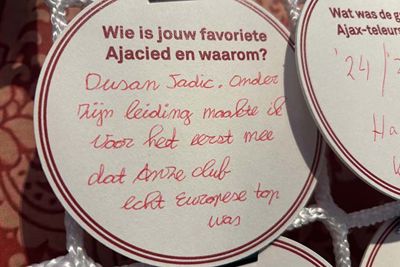 Wie is jouw favoriete
Ajacied en waarom?
Dusan Tadic. Onder
zijn leiding maakte ik
voor het eerst mee
dat onze club
echt Europese top
was
Wat was de g
Ajax-teleurs
'24/2
Ha